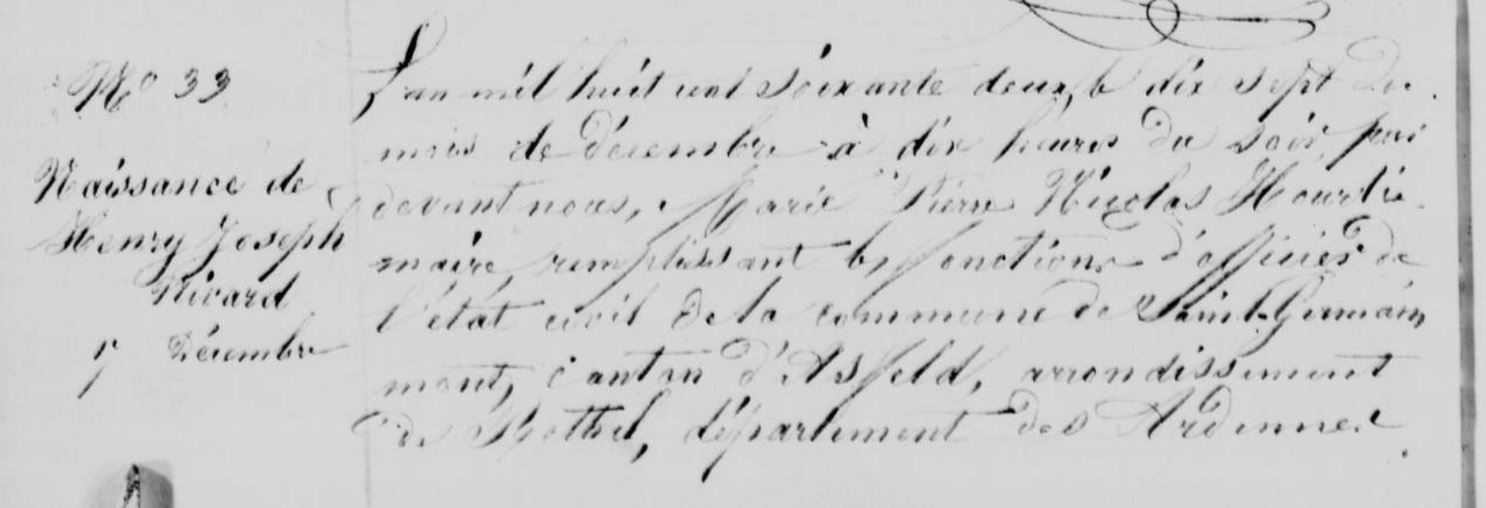 N° 33
Naissance de
Henry Joseph
Nivard
17 Décembre
L'an mil huit cent soixante deux, le dix sept du
mois de décembre à dix heures du soir, par
devant nous, Marie Pierre Nicolas
maire, remplissant les fonctions d'officier de
l'état civil de la commune de Saint-Germain
mont, canton d'Asfeld, arrondissement
de Rethel, département des Ardennes